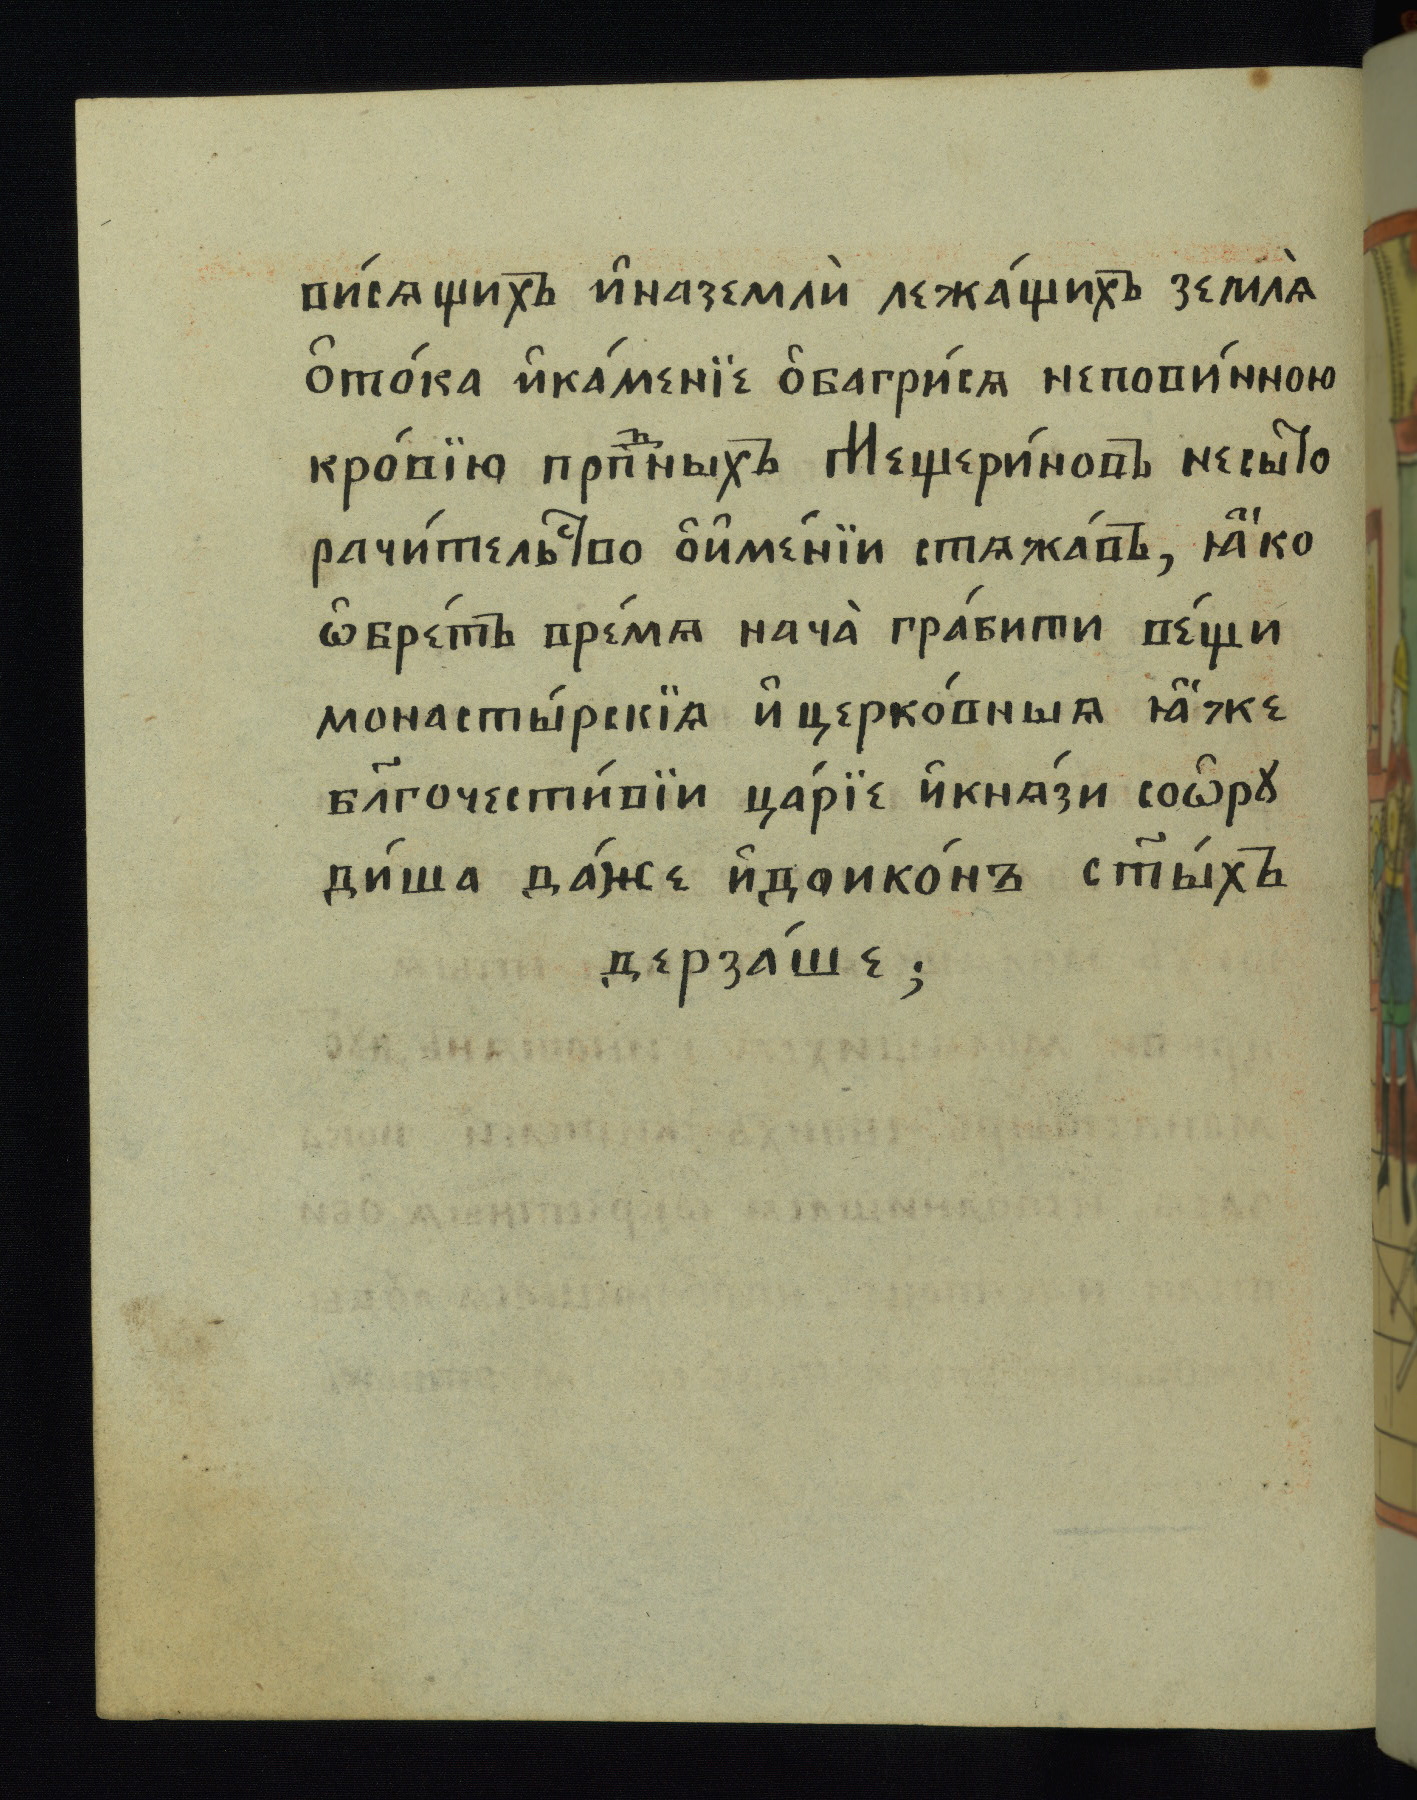 ви́сѧщихъ и҆наземлѝ лежа́щихъ землѧ̀
о҆то́ка и҆ка́менїе о҆багри́сѧ непови́нною
кро́вїю прпⷣныхъ Мещери́новъ несы́то
рачи́тельство о҆и҆ме́нїи стѧжа́въ, ꙗ҆́ко
ѡ҆бре́тъ вре́мѧ нача̀ гра́бити ве́щи
монасты́рскїѧ и҆церко́вныѧ ꙗ҆́же
бл҃гочести́вїи ца́рїе и҆кнѧ́зи соѡ҆рꙋ
ди́ша да́же и҆доико́нъ ст҃ы́хъ
дерза́ше;